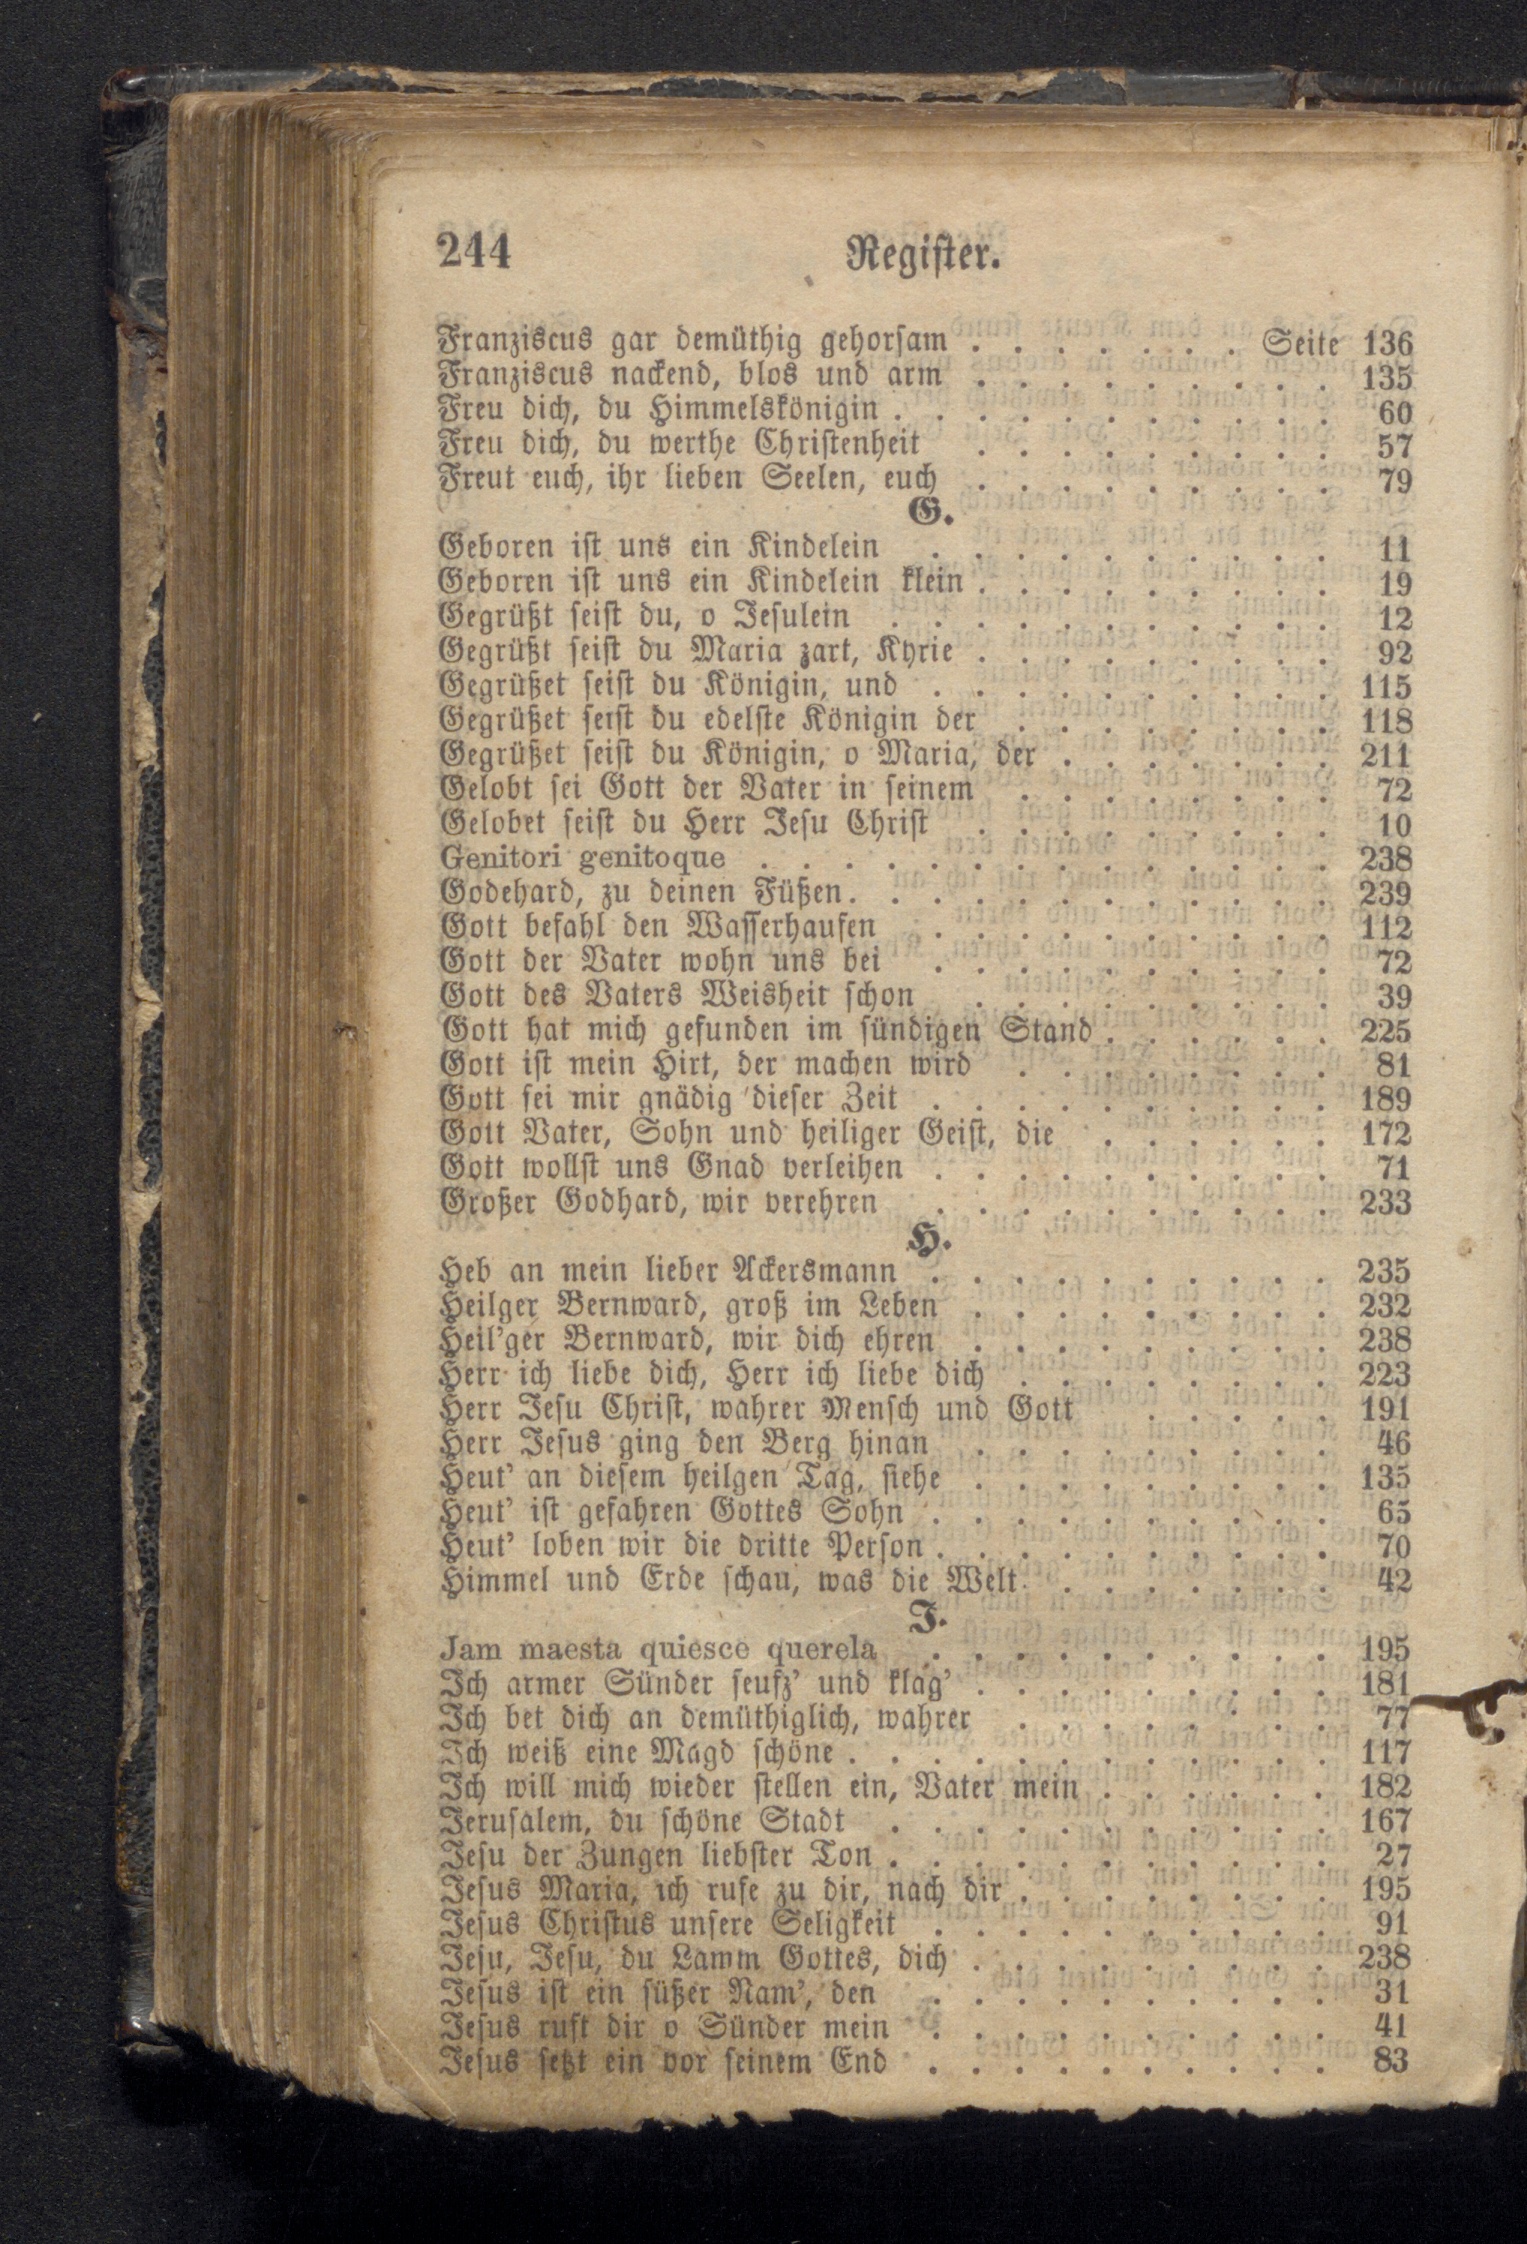 244 Register.
Franziscus gar demüthig gehorsam . . . . . . . Seite 136
Franziscus nackend, blos und arm . . . . . . . . . 135
Freu dich, du Himmelskönigin . . . . . . . . . . . 60
Freu dich, du werthe Christenheit . . . . . . . . . 57
Freut euch, ihr lieben Seelen, euch . . . . . . . . . 79
G.
Geboren ist uns ein Kindelein . . . . . . . . . . 11
Geboren ist uns ein Kindelein klein . . . . . . . . . 19
Gegrüßt seist du, o Jesulein . . . . . . . . . . . 12
Gegrüßt seist du Maria zart, Kyrie . . . . . . . . . 92
Gegrüßet seist du Königin, und . . . . . . . . . . 115
Gegrüßet seist du edelste Königin der . . . . . . . . 118
Gegrüßet seist du Königin, o Maria, der . . . . . . . 211
Gelobt sei Gott der Vater in seinem . . . . . . . . 72
Gelobet seist du Herr Jesu Christ . . . . . . . . . 10
Genitori genitoque . . . . . . . . . . . . . . 238
Godehard, zu deinen Füßen. . . . . . . . . . . . 239
Gott befahl den Wasserhaufen . . . . . . . . . . 112
Gott der Vater wohn uns bei . . . . . . . . . . 72
Gott des Vaters Weisheit schon . . . . . . . . . 39
Gott hat mich gefunden im sündigen Stand . . . . . . 225
Gott ist mein Hirt, der machen wird . . . . . . . . 81
Gott sei mir gnädig dieser Zeit . . . . . . . . . . 189
Gott Vater, Sohn und heiliger Geist, die . . . . . . 172
Gott wollst uns Gnad verleihen . . . . . . . . . . 71
Großer Godhard, wir verehren . . . . . . . . . . 233
H.
Heb an mein lieber Ackersmann . . . . . . . . . . 235
Heilger Bernward, groß im Leben . . . . . . . . . 232
Heil'ger Bernward, wir dich ehren . . . . . . . . . 238
Herr ich liebe dich, Herr ich liebe dich . . . . . . . . 223
Herr Jesu Christ, wahrer Mensch und Gott . . . . . 191
Herr Jesus ging den Berg hinan . . . . . . . . . 46
Heut' an diesem heilgen Tag, siehe . . . . . . . . . 135
Heut' ist gefahren Gottes Sohn . . . . . . . . . . 65
Heut' loben wir die dritte Person . . . . . . . . . . 70
Himmel und Erde schau, was die Welt . . . . . . . 42
J.
Jam maesta quiesce querela . . . . . . . . . . 195
Ich armer Sünder seufz' und klag' . . . . . . . . . 181
Ich bet dich an demüthiglich, wahrer . . . . . . . . 77
Ich weiß eine Magd schöne . . . . . . . . . . . . 117
Ich will mich wieder stellen ein, Vater mein . . . . . . 182
Jerusalem, du schöne Stadt . . . . . . . . . . . 167
Jesu der Zungen liebster Ton . . . . . . . . . . . 27
Jesus Maria, ich rufe zu dir, nach dir . . . . . . . . 195
Jesus Christus unsere Seligkeit . . . . . . . . . . 91
Jesu, Jesu, du Lamm Gottes, dich . . . . . . . . . 238
Jesus ist ein süßer Nam', den . . . . . . . . . . 31
Jesus ruft dir o Sünder mein . . . . . . . . . . 41
Jesus setzt ein vor seinem End . . . . . . . . . . 83